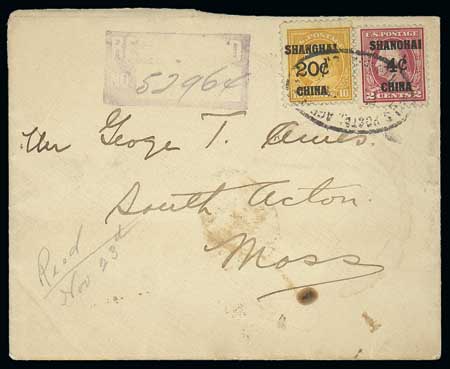 U.S. POSTAGE
SHANGHAI
20¢
CHINA
10
U.S. POSTAGE
SHANGHAI
4¢
CHINA
2 CENTS 2
U.S. POSTAL
No. 52964
Mr George T. Ames.
South Acton.
Mass
Recd
Nov 23